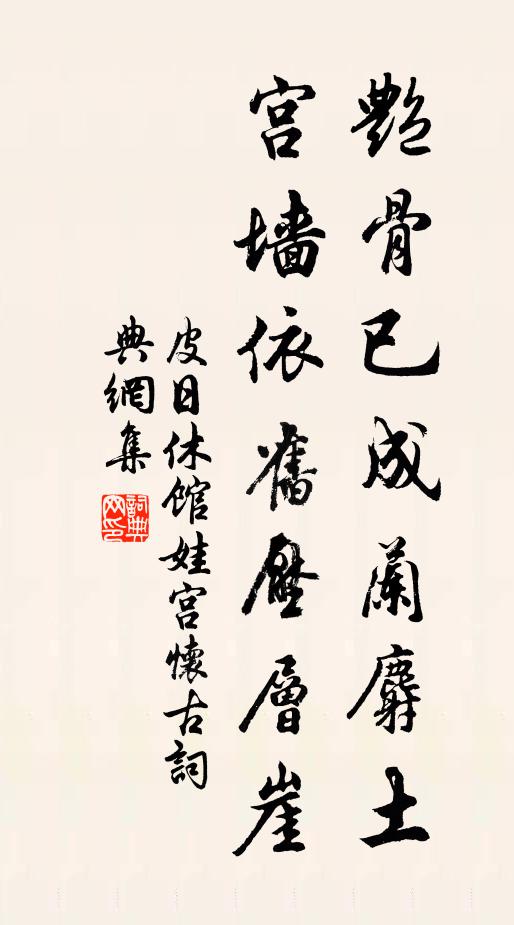 艷骨已成蘭麝土
宮墻依舊壓層崖
皮日休館娃宮懷古詞
典網集
詞典网印